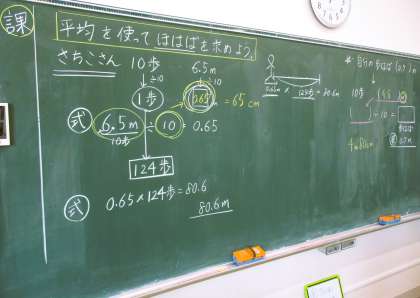 課
平均を使ってほはばを求めよう。
さちこさん 10歩 6.5m
÷10 ÷10
1歩 0.65 = 65cm
式 6.5m ÷ 10 = 0.65
10歩
124歩
式 0.65×124歩=80.6
80.6m
0.65m × 124歩 = 80.6m
10歩
÷10=